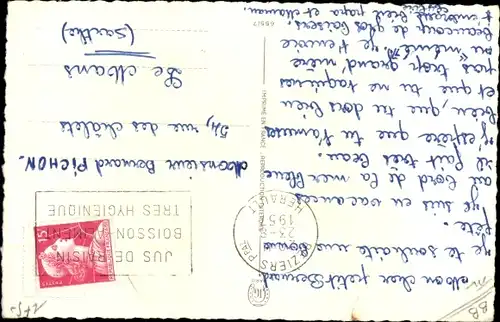 Mon cher petit Bernard.
Je te souhaite une bonne
fête.
Je suis en vacances
au bord de la mer bleue
il fait très beau.
J'espère que tu t'amuses
bien, que tu dors bien
et que tu ne taquines
pas trop grand'mère
Je t'envoie
Beaucoup de gros baisers
t'embrasses bien papa et maman.
IMPRIMÉ EN FRANCE - REPRODUCTION INTERDITE
BÉZIERS PPAL
23-
195
HERAULT
JUS DE RAISIN
BOISSON
TRES HYGIENIQUE
15F
Monsieur Bernard PICHON.
54, rue des châlets
Le Mans
(Sarthe)
BB